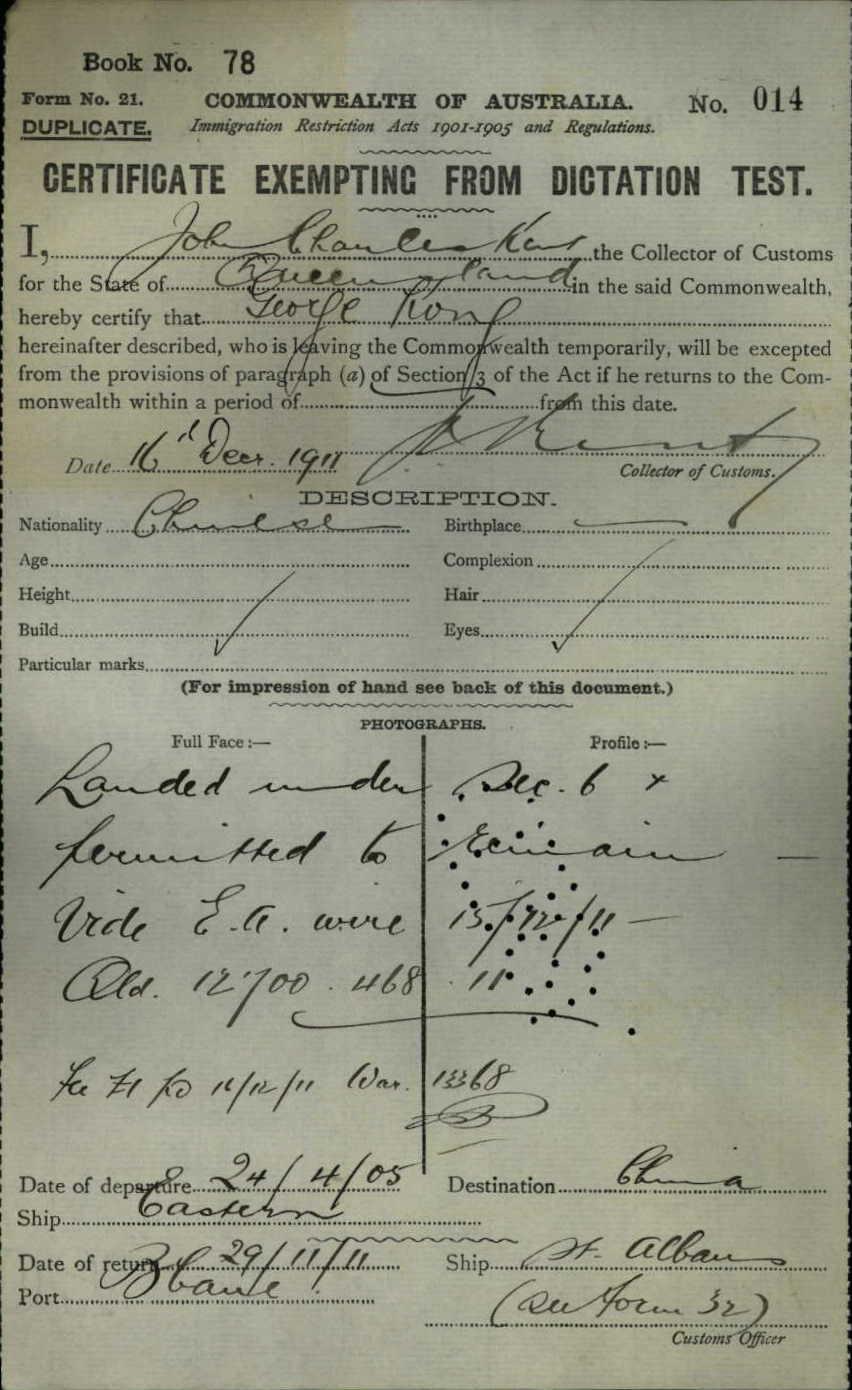 Book No. 78
Form No. 21. COMMONWEALTH OF AUSTRALIA. No. 014
DUPLICATE. Immigration Restriction Acts 1901-1905 and Regulations.
CERTIFICATE EXEMPTING FROM DICTATION TEST.
I, John Charles Kent the Collector of Customs
for the State of Queensland in the said Commonwealth,
hereby certify that George Kong
hereinafter described, who is leaving the Commonwealth temporarily, will be excepted
from the provisions of paragraph (a) of Section 3 of the Act if he returns to the Com-
monwealth within a period of from this date.
Date 16th Decr. 1911 J C Kent
Collector of Customs.
DESCRIPTION.
Nationality Chinese Birthplace
Age Complexion
Height Hair
Build Eyes
Particular marks
(For impression of hand see back of this document.)
PHOTOGRAPHS.
Full Face :— Profile :—
Landed under Sec. 6 x
permitted to remain —
Vide E.A. wire 15/12/11 —
Qld. 12700 . 468 . 11
Fee £1 pd 16/12/11 War. 13368
Date of departure 24/4/05 Destination China
Ship Eastern
Date of return 29/11/11 Ship St. Albans
Port Bbane
(see form 32)
Customs Officer